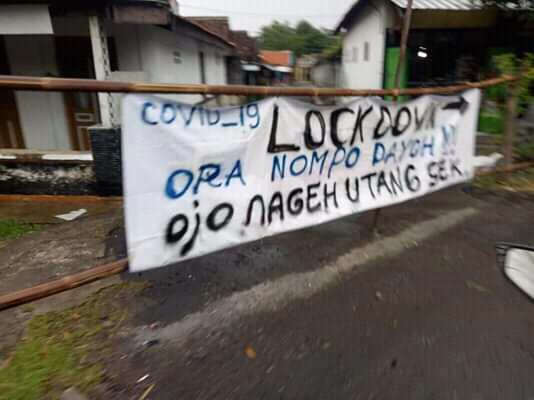 COVID_19 LOCKDOWN →
ORA NOMPO DAYOH !!
OJO NAGEH UTANG SEK.